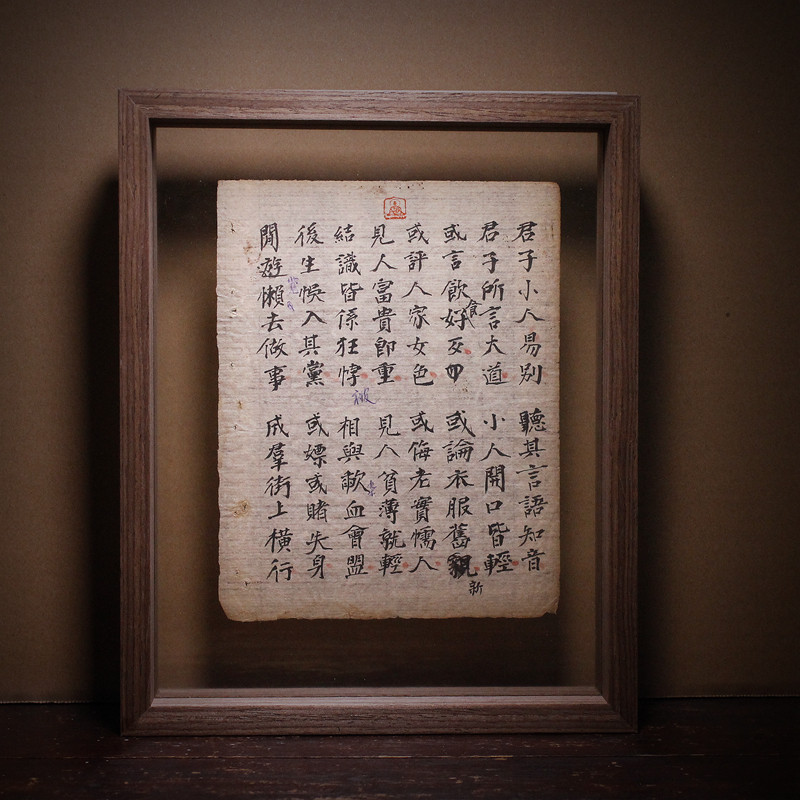 君子小人易別 聽其言語知音
君子所言大道 小人開口皆輕
或言飲食好歹 或論衣服舊新
或評人家女色 或侮老實懦人
見人富貴即重 見人貧薄就輕
結識皆係狂悖 相與歃血會盟
後生悞入其黨 或嫖或賭失身
閒遊懶去做事 成羣街上橫行